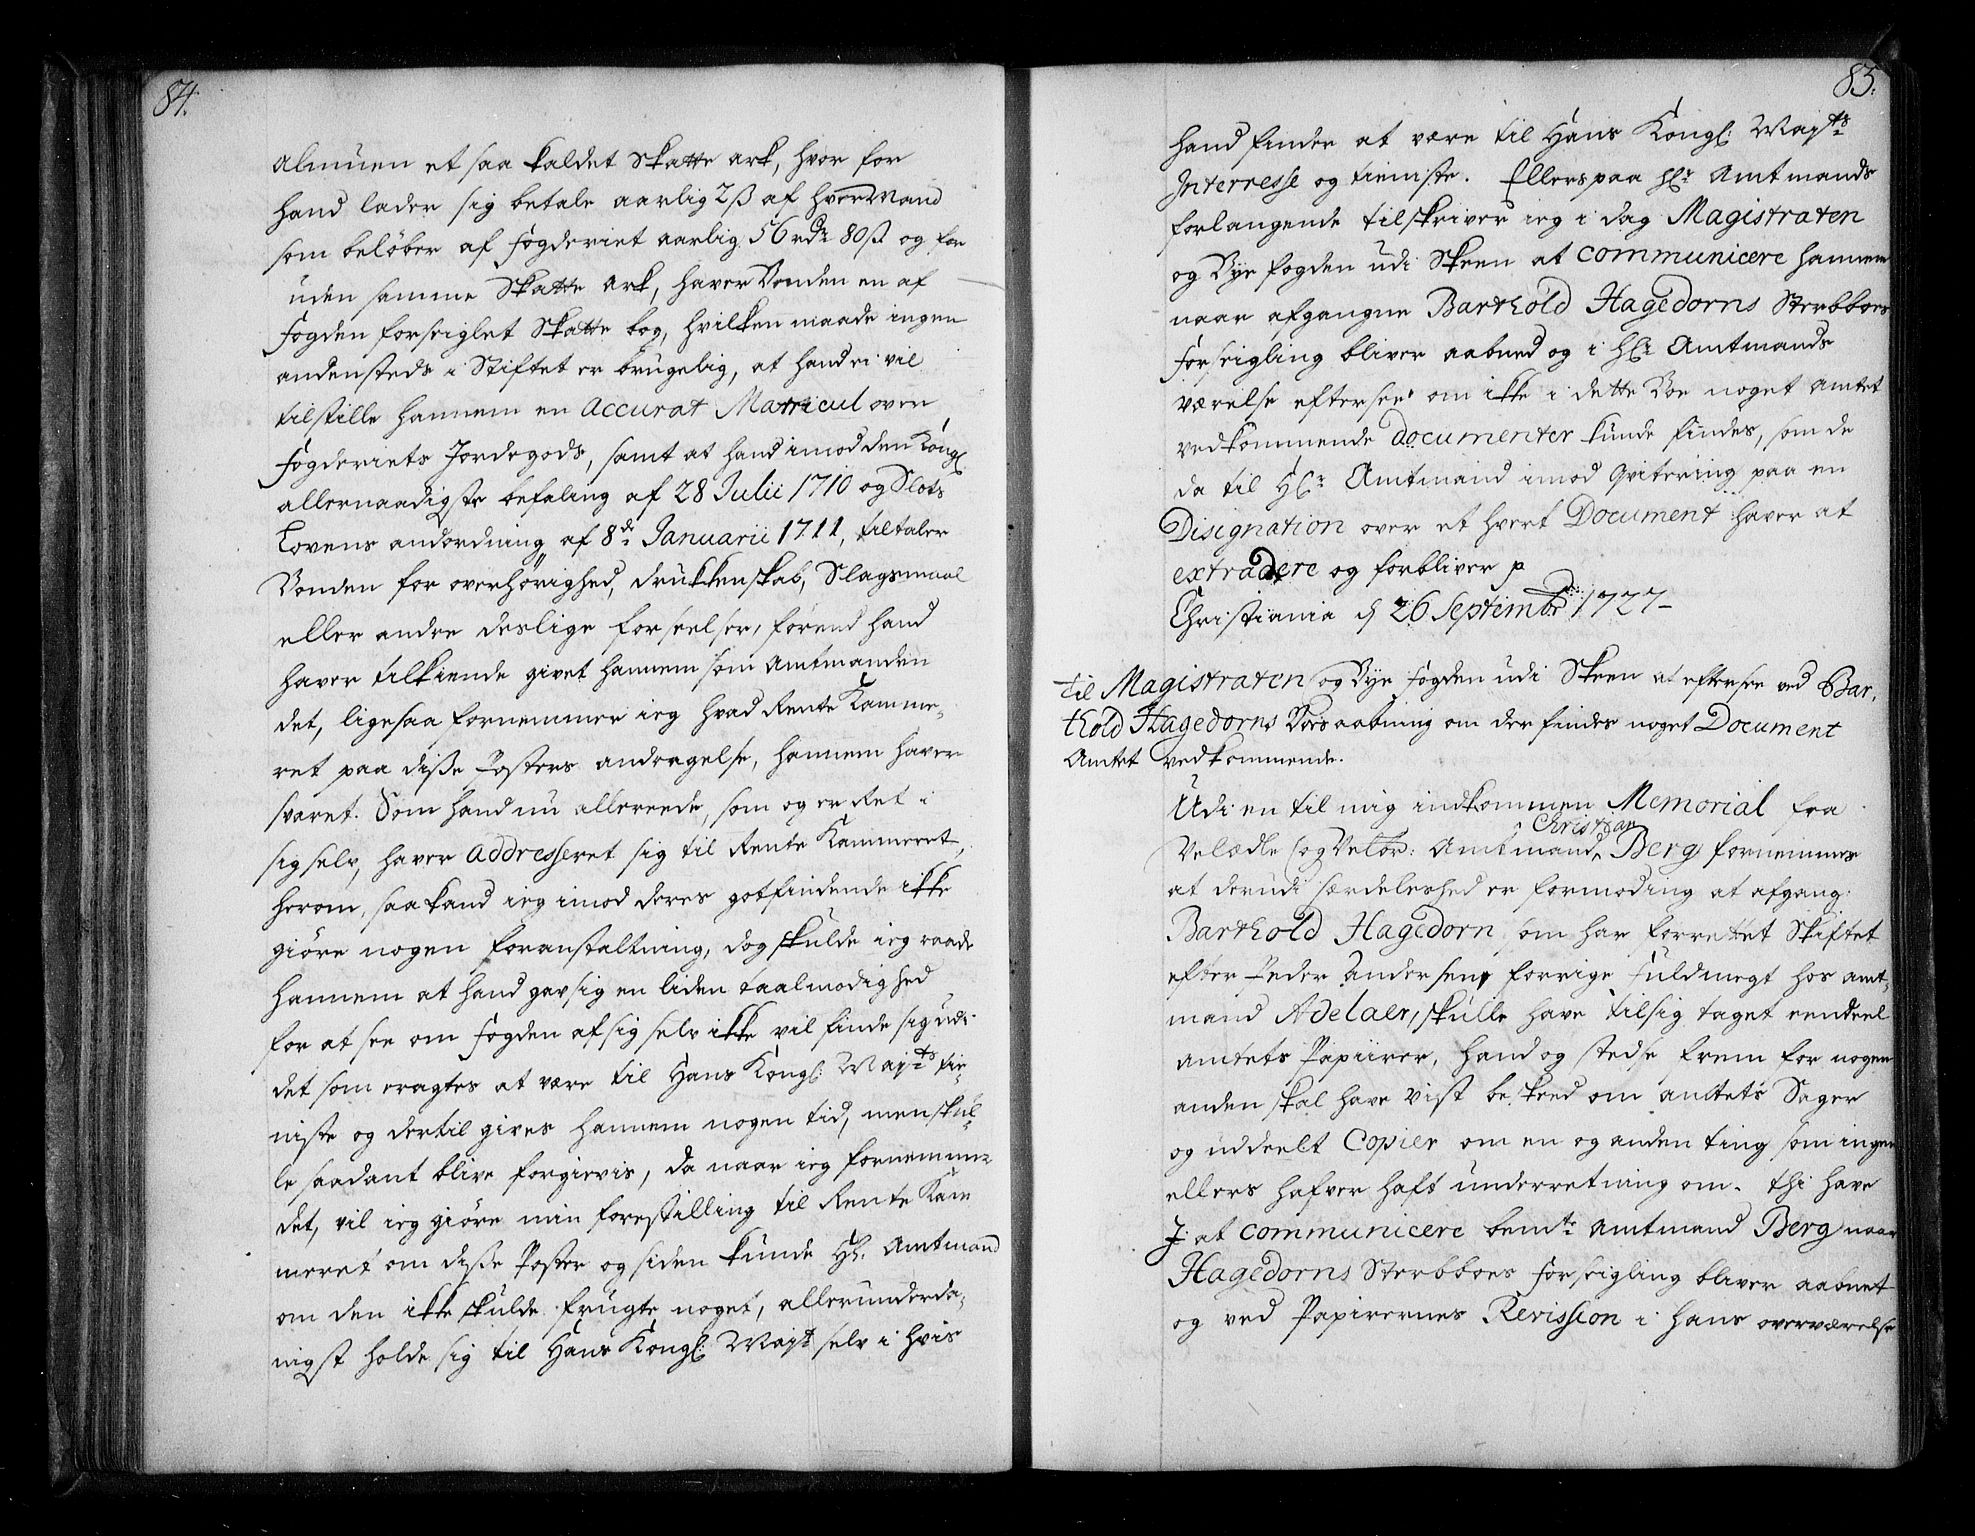 84.
Almuen et saa kaldet Skatte ark, hvor for
hand lader sig betale aarlig 2 ß af hver Mand
som beløber af fogderiet aarlig 56 rdr 80 ß og for
uden samme Skatte ark, haver Bonden en af
fogden forseiglet Skatte bog, hvilken maade ingen
andensteds i Stiftet er brugelig, at hand ei vil
tilstille hannem en Accurat Matricul over
fogderiets Jordegods, samt at hand imod den Kongl:
allernaadigste befaling af 28 Julii 1710 og Slots
Lovens andordning af 8de Januarii 1711, tiltaler
Bonden for overhørighed, drukkenskab, Slagsmaal
eller andre deslige forseelser, førend hand
haver tilkiende givet hannem som Amtmanden
det, ligesaa fornemmer ieg hvad Rente Kamme-
ret paa disse Posters andragelse, hannem haver
svaret. Som hand nu allereede, som og er Ret i
sig selv, haver addresseret sig til Rente Kammeret,
herom, saa kand ieg imod deres gotfindende ikke
giøre nogen foranstaltning, dog skulde ieg raade
hannem at hand gav sig en liden taalmodighed
for at see om fogden af sig selv ikke vil finde sig udi
det som eragtes at være til Hans Kongl: Mayts tie-
niste og dertil gives hannem nogen tid, men skul-
le saadant blive forgievis, da naar ieg fornemmer
det, vil ieg giøre min forestilling til Rente Kam
meret om disse Poster og siden kunde Hr. Amtmand
om den ikke skulde frugte noget, allerunderda-
nigst holde sig til Hans Kongl: Mayt selv i hvis
85.
hand finder at være til Hans Kongl: Mayts
Interresse og tieniste. Ellers paa Hr. Amtmands
forlangende tilskriver ieg i dag Magistraten
og Bye fogden udi Skeen at communicere hannem
naar afgangne Barthold Hagedorns Sterbboes
forseigling bliver aabned og i Hr. Amtmands
værelse eftersee om ikke i dette Boe noget Amtet
vedkommende documenter kunde findes, som de
da til Hr. Amtmand imod qvitering paa en
Disignation over et hvert Document haver at
extradere og forbliver p
Christiania d 26 Septembr: 1727-
Til Magistraten og Bye fogden udi Skeen at eftersee ved Bar-
thold Hagedorns Boes aabning om der findes noget Document
Amtet vedkommende.
Udi en til mig indkommen Memorial fra
Velædle (og Velbr: Amtmand Christian Berg fornemmes
at derudi særdeleshed er formoding at afgang:
Barthold Hagedorn som har forrettet Skiftet
efter Peder Andersen forrige fuldmegt hos Amt-
mand Adelaer, skulle have til sig taget eendeel
Amtets Papiirer, hand og stedse frem for nogen
anden skal have vist beskeed om amtets Sager
og uddeelt Copier om en og anden ting som ingen
ellers hafver haft underretning om. thi have
I at communicere bemte Amtmand Berg naar
Hagedorns Sterbboes forseigling bliver aabnet
og ved Papirernes Revission i hans overværelse